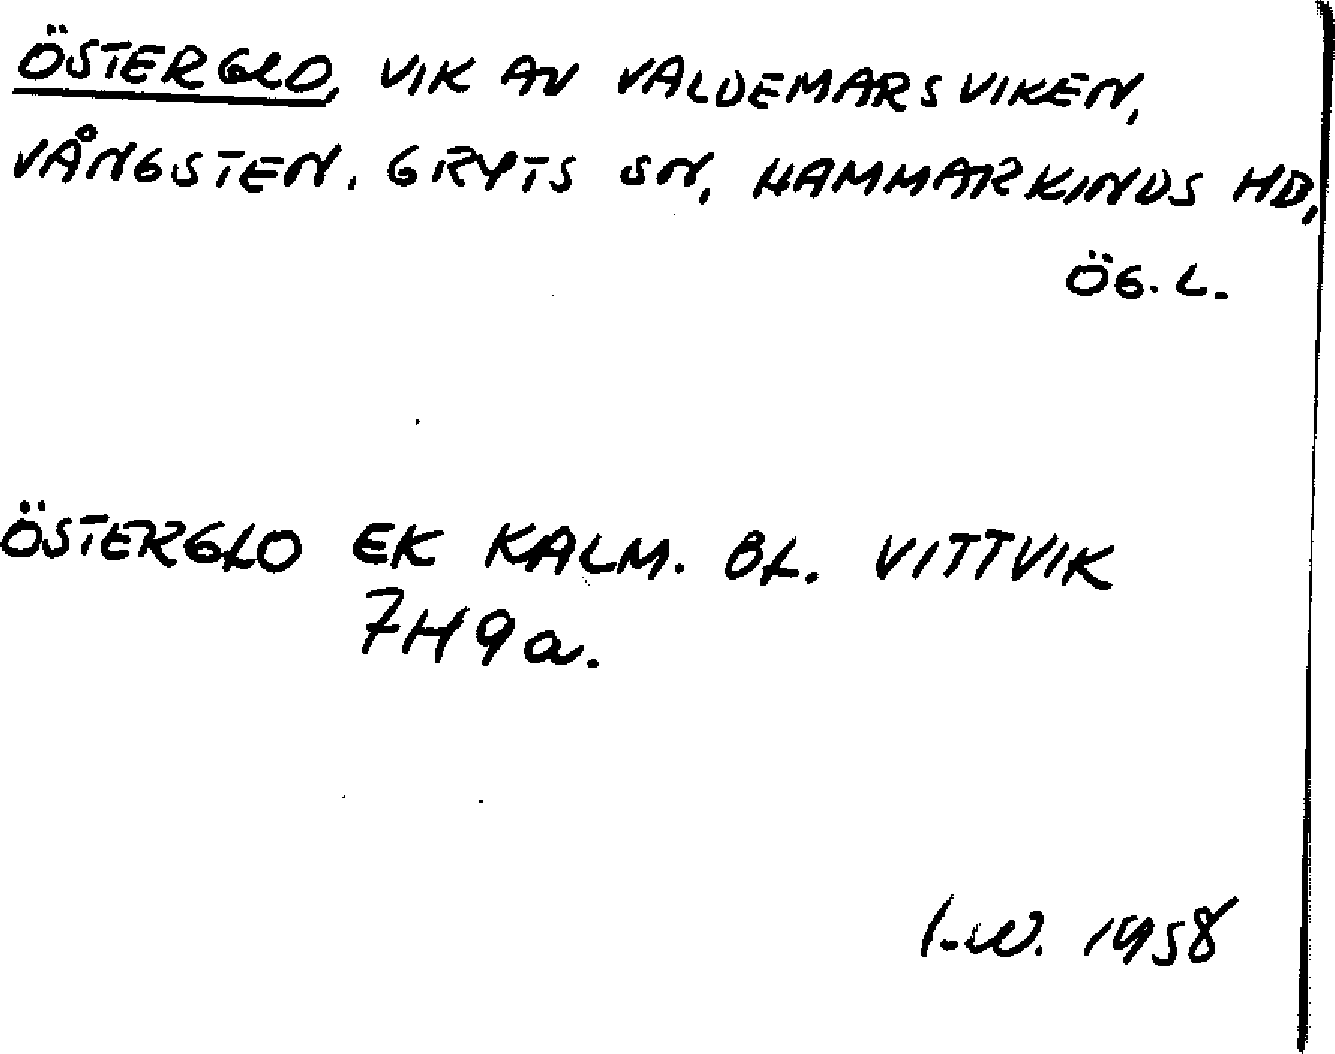 ÖSTERGLO, VIK AV VALDEMARSVIKEN,
VÅNGSTEN. GRYTS SN, HAMMARKINDS HD,
ÖG. L.
ÖSTERGLO EK KALM. BL. VITTVIK
7H9a.
I.W. 1958